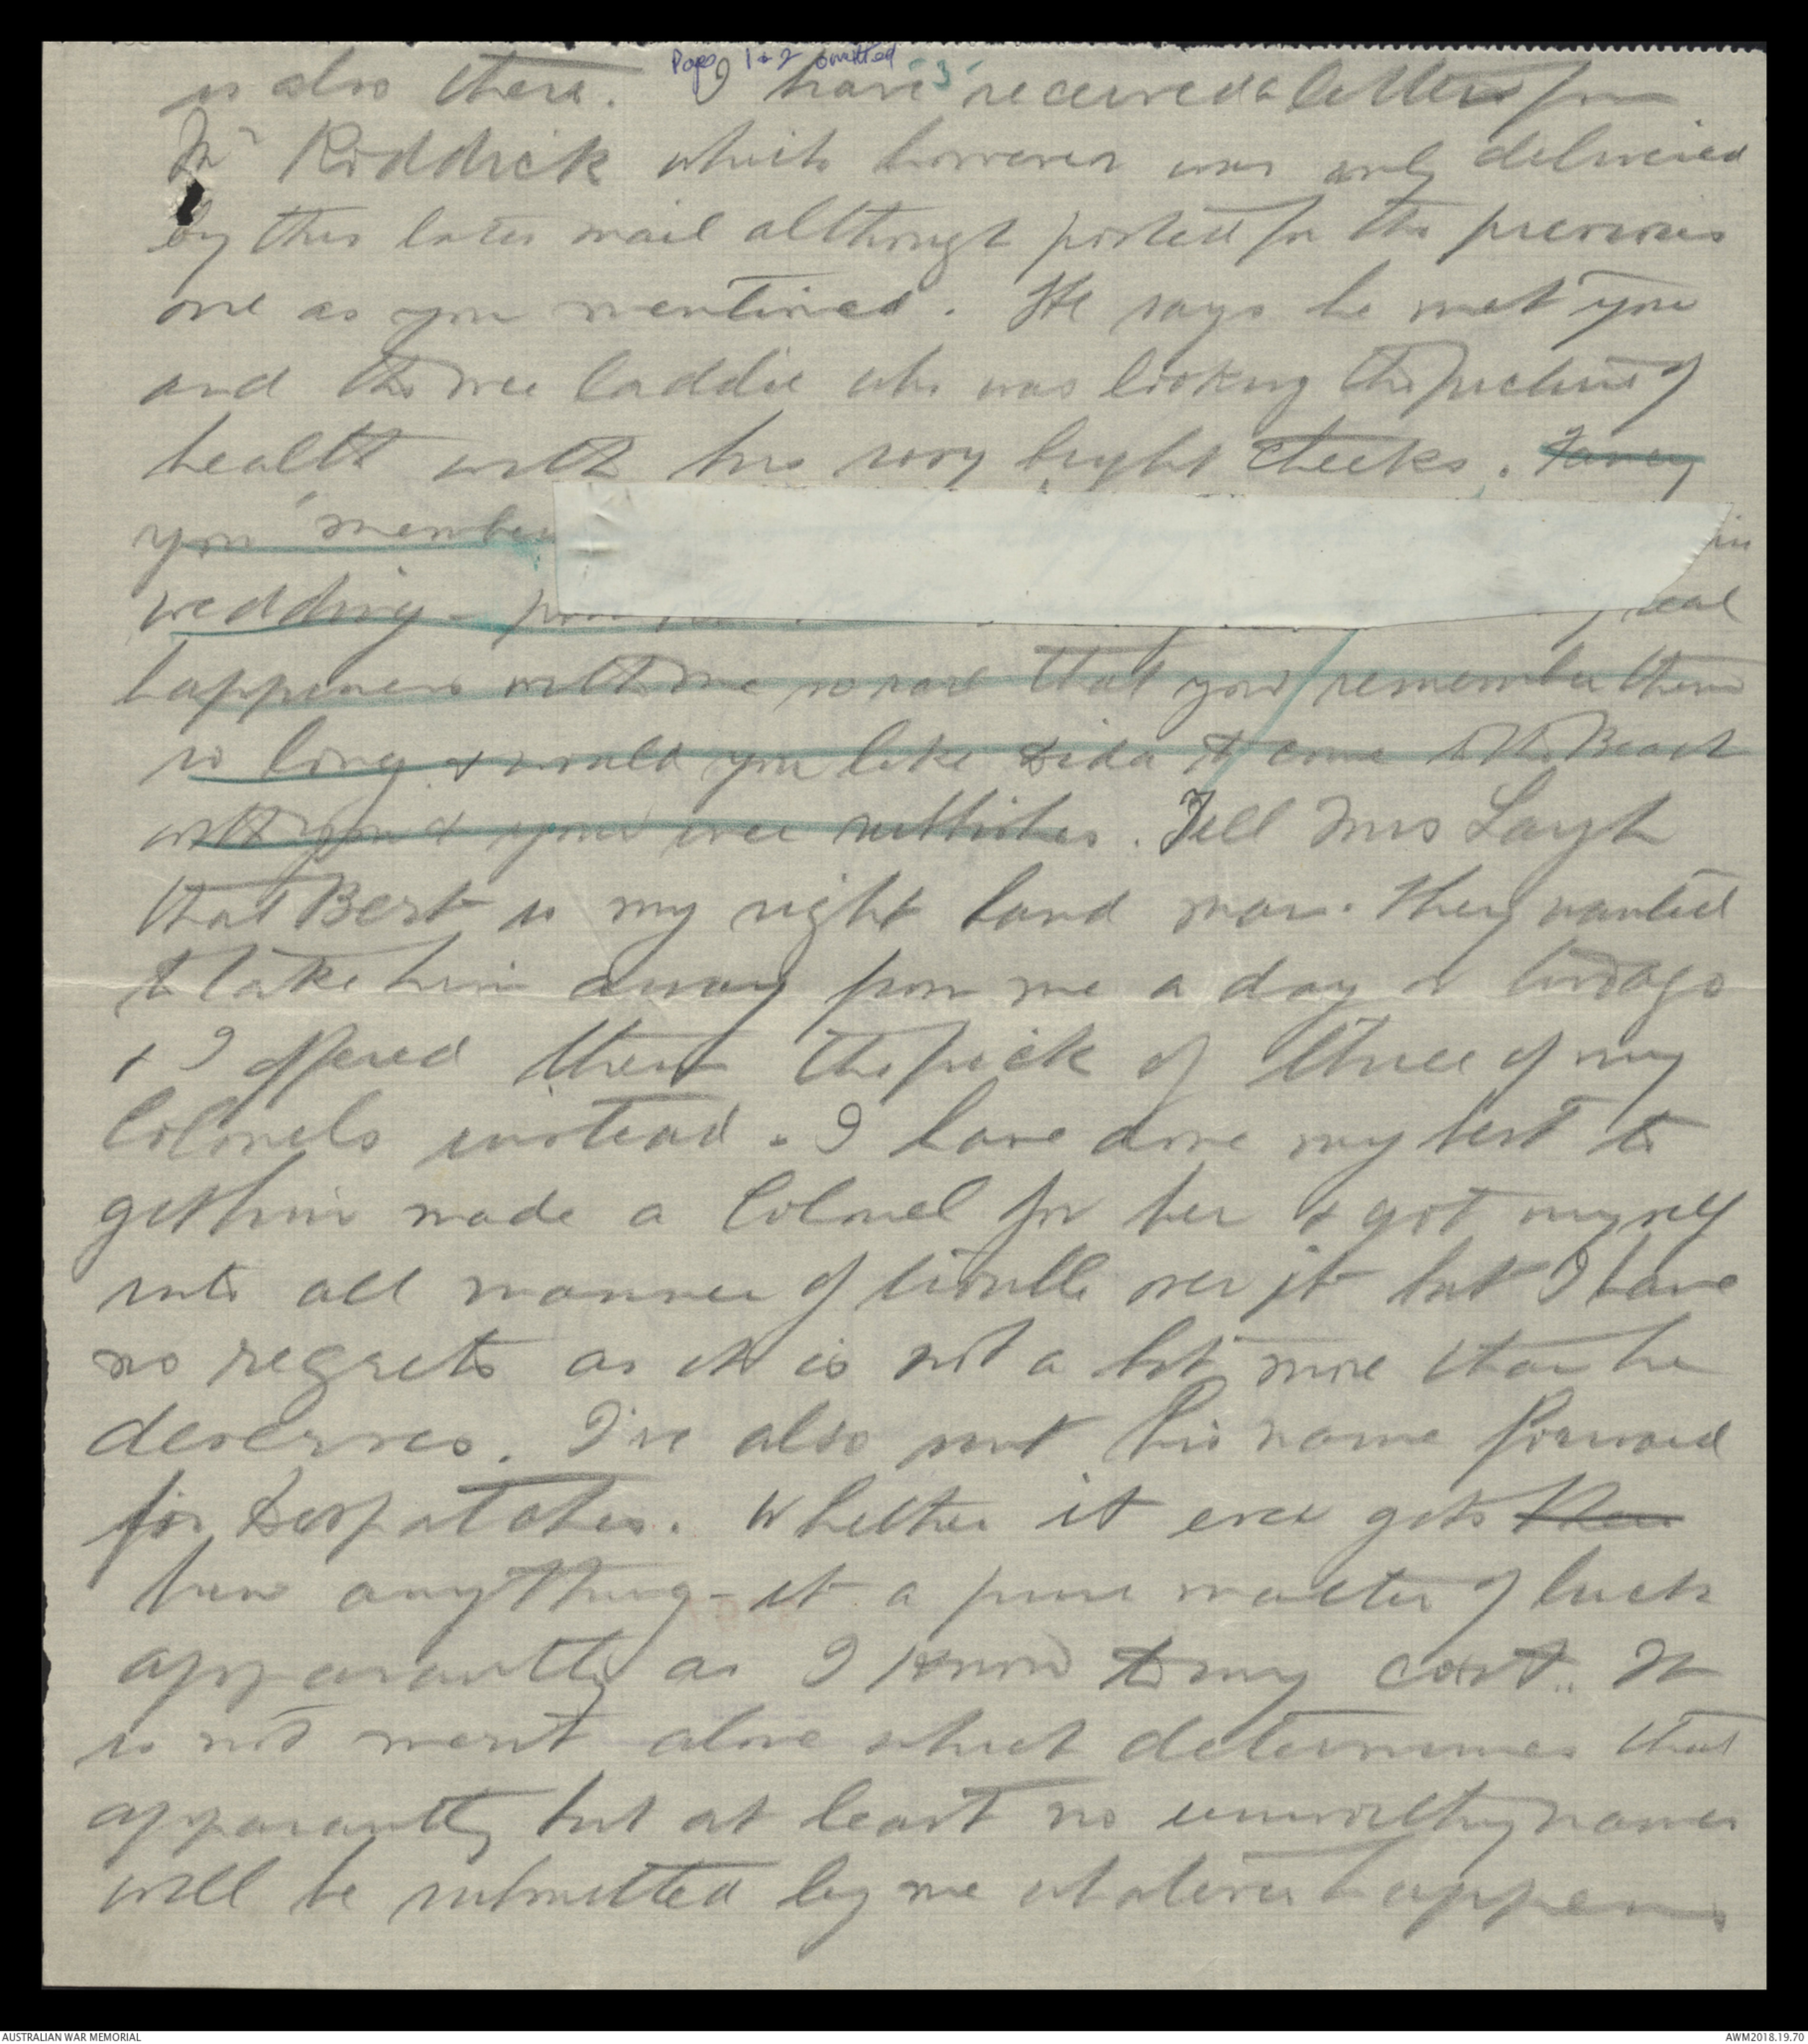 Page 1 & 2 omitted
-3-
is also there. I have received a letter from
Mr Riddick which however was only delivered
by this later mail although posted for the previous
one as you mentioned. He says he met you
and the wee laddie who was looking the picture of
health with his rosy bright cheeks. Fancy
you member in
wedding -
happiness with me so rare that you remember them
so long & would you like Dida to come to the Beach
with you & your wee
Tell Mrs Layh
that Bert is my right hand man. They wanted
to take him away from me a day or two ago
& I offered them the pick of three of my
Colonels instead. I have done my best to
get him made a Colonel for her & got myself
into all manner of trouble over it but I have
no regrets as it is not a bit more than he
deserves. I've also sent his name forward
for Despatches. Whether it ever gets
him anything - it a pure matter of luck
apparantly as I know to my cost. It
is not merit alone which determines that
apparantly but at least no unworthy names
will be submitted by me whatever happens
AUSTRALIAN WAR MEMORIAL
AWM2018.19.70